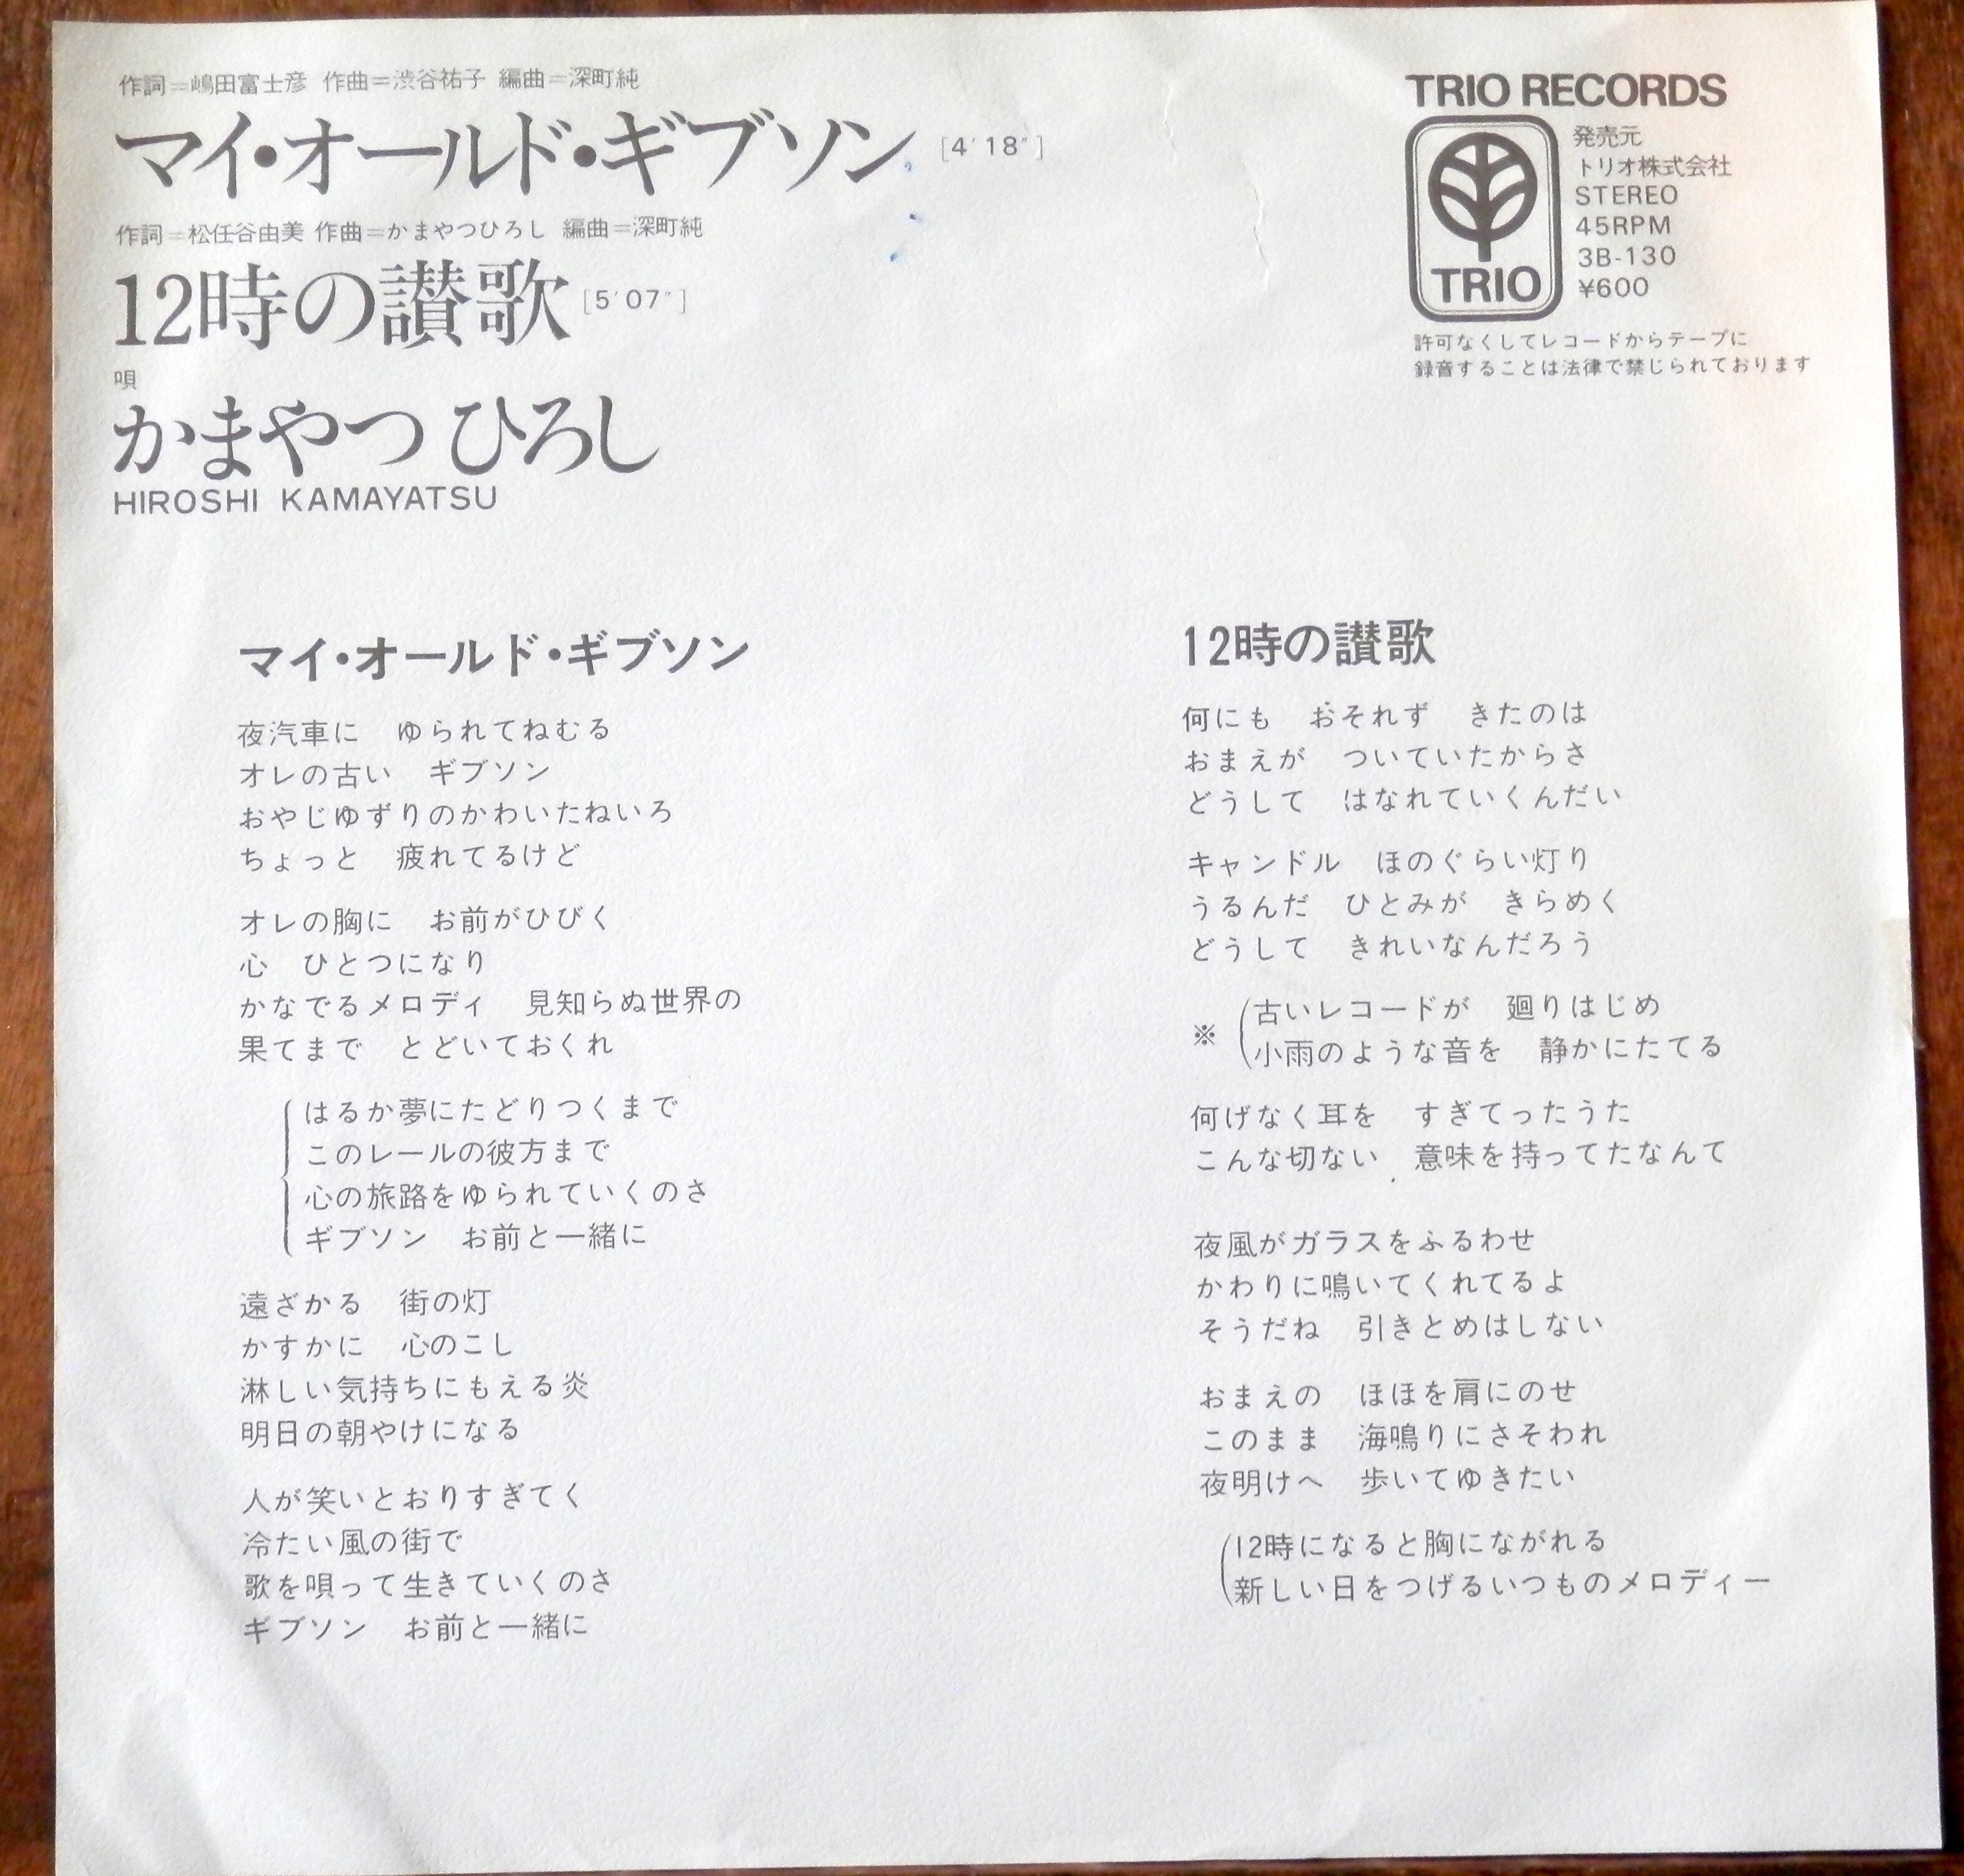 作詞=嶋田富士彦 作曲=渋谷祐子 編曲=深町純
マイ・オールド・ギブソン [4'18"]
作詞=松任谷由美 作曲=かまやつひろし 編曲=深町純
12時の讃歌 [5'07"]
唄
かまやつ ひろし
HIROSHI KAMAYATSU
TRIO RECORDS
TRIO
発売元
トリオ株式会社
STEREO
45RPM
3B-130
¥600
許可なくしてレコードからテープに
録音することは法律で禁じられております
マイ・オールド・ギブソン
夜汽車に ゆられてねむる
オレの古い ギブソン
おやじゆずりのかわいたねいろ
ちょっと 疲れてるけど
オレの胸に お前がひびく
心 ひとつになり
かなでるメロディ 見知らぬ世界の
果てまで とどいておくれ
はるか夢にたどりつくまで
このレールの彼方まで
心の旅路をゆられていくのさ
ギブソン お前と一緒に
遠ざかる 街の灯
かすかに 心のこし
淋しい気持ちにもえる炎
明日の朝やけになる
人が笑いとおりすぎてく
冷たい風の街で
歌を唄って生きていくのさ
ギブソン お前と一緒に
12時の讃歌
何にも おそれず きたのは
おまえが ついていたからさ
どうして はなれていくんだい
キャンドル ほのぐらい灯り
うるんだ ひとみが きらめく
どうして きれいなんだろう
※ (古いレコードが 廻りはじめ
小雨のような音を 静かにたてる
何げなく耳を すぎてったうた
こんな切ない 意味を持ってたなんて
夜風がガラスをふるわせ
かわりに鳴いてくれてるよ
そうだね 引きとめはしない
おまえの ほほを肩にのせ
このまま 海鳴りにさそわれ
夜明けへ 歩いてゆきたい
(12時になると胸にながれる
新しい日をつげるいつものメロディー